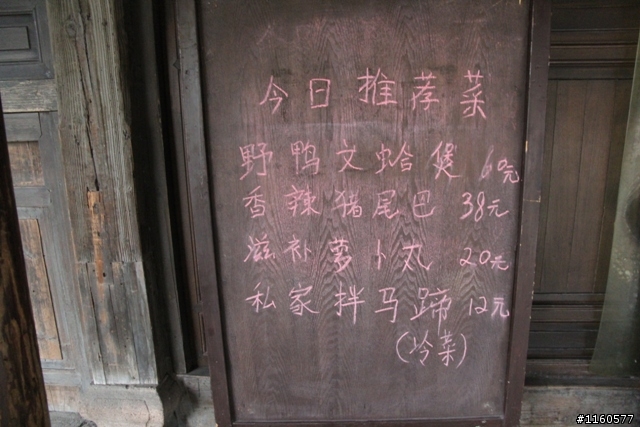 今日推荐菜
野鸭文蛤煲 60元
香辣猪尾巴 38元
滋补萝卜丸 20元
私家拌马蹄 12元
(冷菜)
#1160577